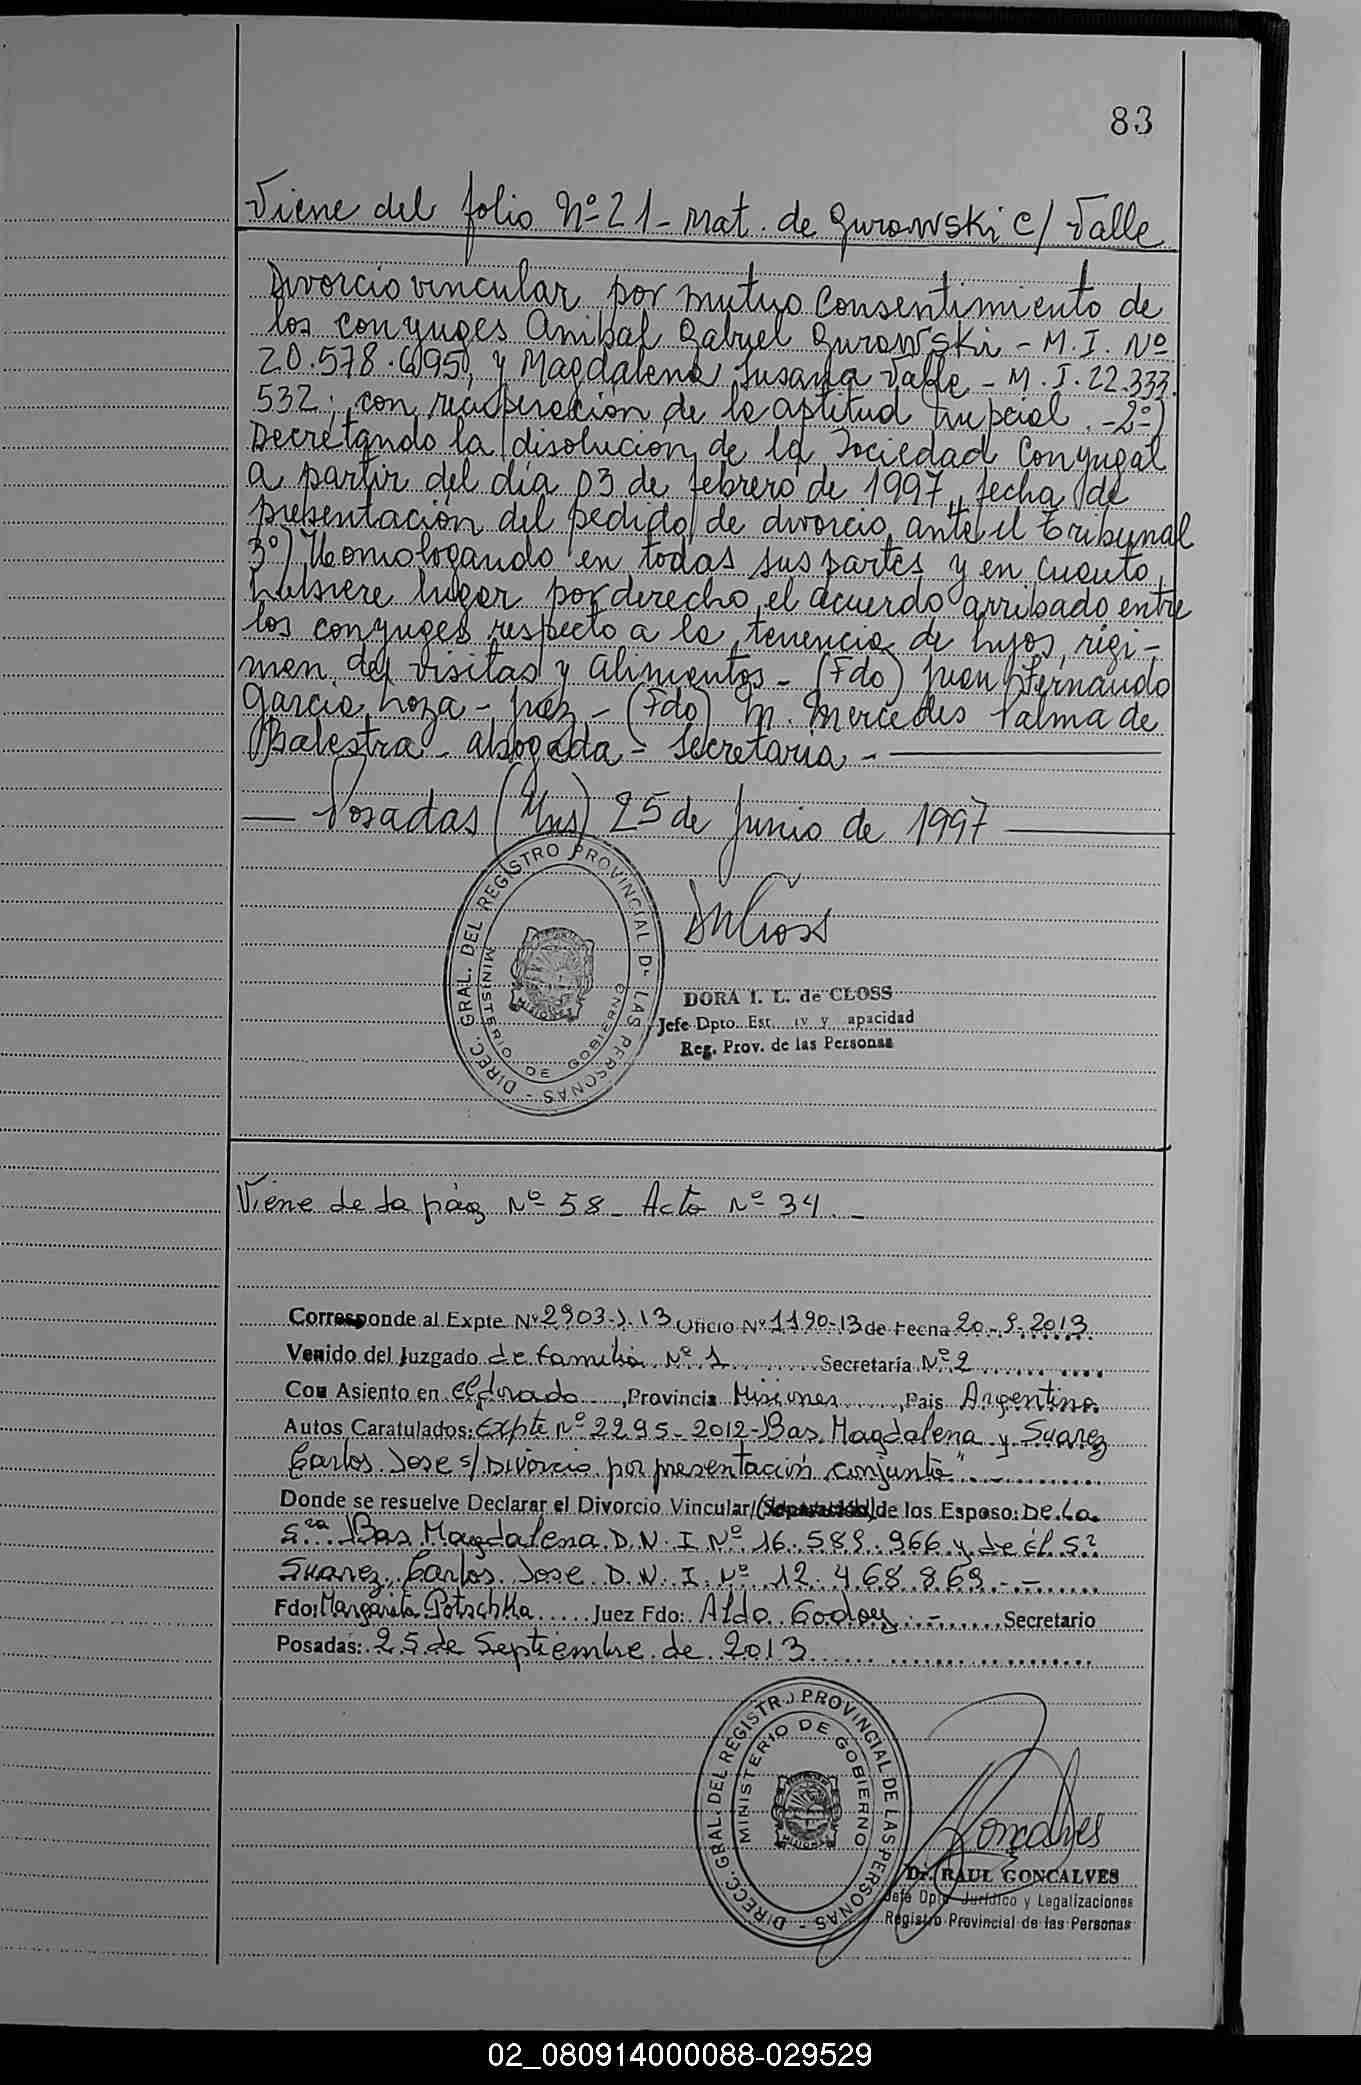 83
Viene del folio Nº 21 - Mat. de Gurowski c/ Valle
Divorcio vincular por mutuo Consentimiento de
los conyuges Anibal Gabriel Gurowski - M.I. Nº
20.578.695, y Magdalena Susana Valle - M.I. 22.333.
532; con recuperación de la aptitud nupcial. -2º)
Decretando la disolución de la Sociedad Conyugal
a partir del día 03 de febrero de 1997, fecha de
presentación del pedido de divorcio ante el tribunal
3º) Homologando en todas sus partes y en cuanto
hubiere lugar por derecho el acuerdo arribado entre
los conyuges respecto a la tenencia de hijos, régi-
men de visitas y alimentos - (Fdo) Juan Fernando
Garcia Loza - Juez - (Fdo) M. Mercedes Palma de
Balestra - abogada - Secretaria -
— Posadas (Mns) 25 de Junio de 1997 —
DIREC. GRAL. DEL REGISTRO PROVINCIAL DE LAS PERSONAS -
MINISTERIO DE GOBIERNO
MISIONES
DORA I. L. de CLOSS
Jefe Dpto. Est. iv y apacidad
Reg. Prov. de las Personas
Viene de la pág Nº 58 - Acta Nº 34. -
Corresponde al Expte Nº 2903-J-13 Oficio Nº 1190-13 de Fecha 20-9-2013
Venido del Juzgado de familia Nº 1 Secretaría Nº 2
Con Asiento en Eldorado, Provincia Misiones, Pais Argentina
Autos Caratulados: Expte Nº 2295-2012-Bas Magdalena y Suarez
Carlos Jose s/ Divorcio por presentación conjunta"
Donde se resuelve Declarar el Divorcio Vincular/(Separación) de los Esposo: De La
Sra Bas Magdalena D.N.I Nº 16.589.966 y de él Sr
Suarez Carlos Jose D.N.I. Nº 12.468.869.--
Fdo: Margareta Potschka Juez Fdo: Aldo Godoy.- Secretario
Posadas: 25 de Septiembre de 2013
DIRECC. GRAL. DEL REGISTRO PROVINCIAL DE LAS PERSONAS -
MINISTERIO DE GOBIERNO
MISIONES
Goncalves
Dr. RAUL GONCALVES
Jefe Dpto Jurídico y Legalizaciones
Registro Provincial de las Personas
02_080914000088-029529